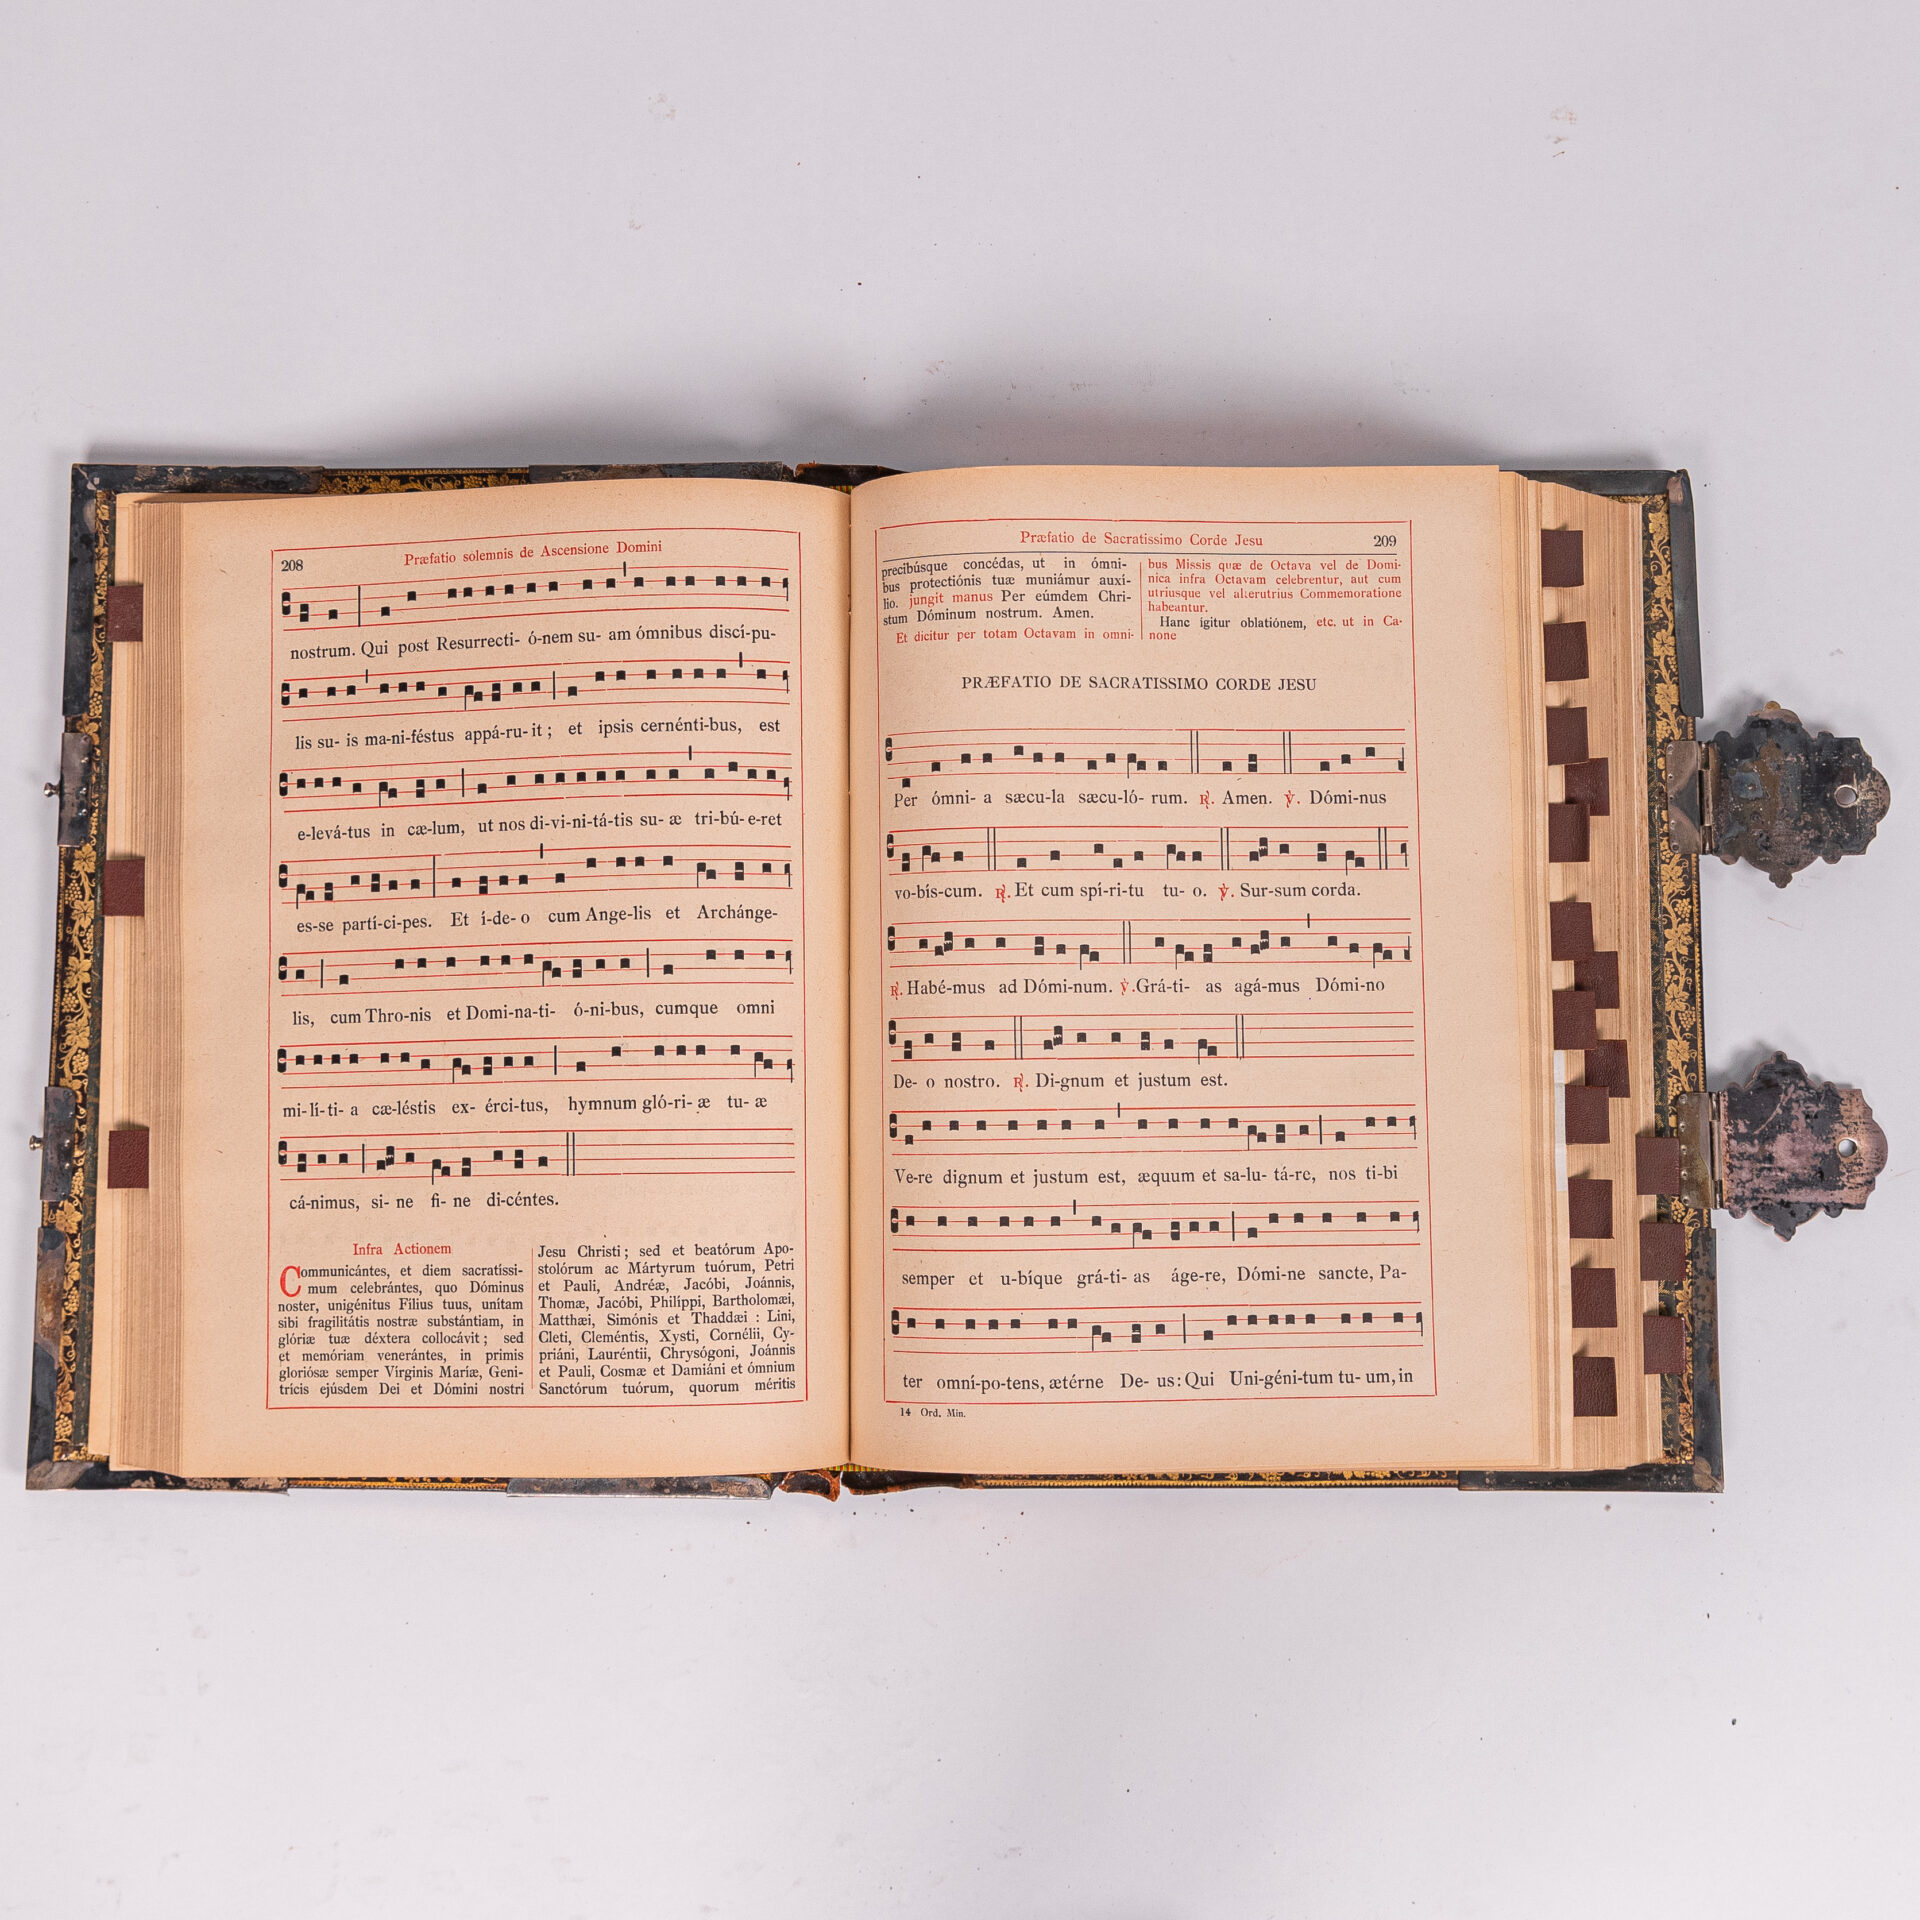 208
Præfatio solemnis de Ascensione Domini
nostrum. Qui post Resurrecti- ó-nem su- am ómnibus discí-pu-
lis su- is ma-ni-féstus appá-ru-it; et ipsis cernénti-bus, est
e-levá-tus in cæ-lum, ut nos di-vi-ni-tá-tis su- æ tri-bú-e-ret
es-se partí-ci-pes. Et í-de- o cum Ange-lis et Archánge-
lis, cum Thro-nis et Domi-na-ti- ó-ni-bus, cumque omni
mi-lí-ti- a cæ-léstis ex- érci-tus, hymnum gló-ri- æ tu- æ
cá-nimus, si- ne fi- ne di-céntes.
Infra Actionem
Communicántes, et diem sacratíssi-
mum celebrántes, quo Dóminus
noster, unigénitus Fílius tuus, unítam
sibi fragilitátis nostræ substántiam, in
glóriæ tuæ déxtera collocávit; sed
et memóriam venerántes, in primis
gloriósæ semper Vírginis Maríæ, Geni-
trícis ejúsdem Dei et Dómini nostri
Jesu Christi; sed et beatórum Apo-
stolórum ac Mártyrum tuórum, Petri
et Pauli, Andréæ, Jacóbi, Joánnis,
Thomæ, Jacóbi, Philíppi, Bartholomæi,
Matthæi, Simónis et Thaddæi : Lini,
Cleti, Cleméntis, Xysti, Cornélii, Cy-
priáni, Lauréntii, Chrysógoni, Joánnis
et Pauli, Cosmæ et Damiáni et ómnium
Sanctórum tuórum, quorum méritis
Præfatio de Sacratissimo Corde Jesu
209
precibúsque concédas, ut in ómni-
bus protectiónis tuæ muniámur auxí-
lio. jungit manus Per eúmdem Chri-
stum Dóminum nostrum. Amen.
Et dicitur per totam Octavam in omni-
bus Missis quæ de Octava vel de Domi-
nica infra Octavam celebrentur, aut cum
utriusque vel alterutrius Commemoratione
habeantur.
Hanc ígitur oblatiónem, etc. ut in Ca-
none
PRÆFATIO DE SACRATISSIMO CORDE JESU
Per ómni- a sæcu-la sæcu-ló- rum. ℟. Amen. ℣. Dómi-nus
vo-bís-cum. ℟. Et cum spí-ri-tu tu- o. ℣. Sur-sum corda.
℟. Habé-mus ad Dómi-num. ℣. Grá-ti- as agá-mus Dómi-no
De- o nostro. ℟. Di-gnum et justum est.
Ve-re dignum et justum est, æquum et sa-lu- tá-re, nos ti-bi
semper et u-bíque grá-ti- as áge-re, Dómi-ne sancte, Pa-
ter omní-po-tens, ætérne De- us: Qui Uni-géni-tum tu- um, in
14 Ord. Min.